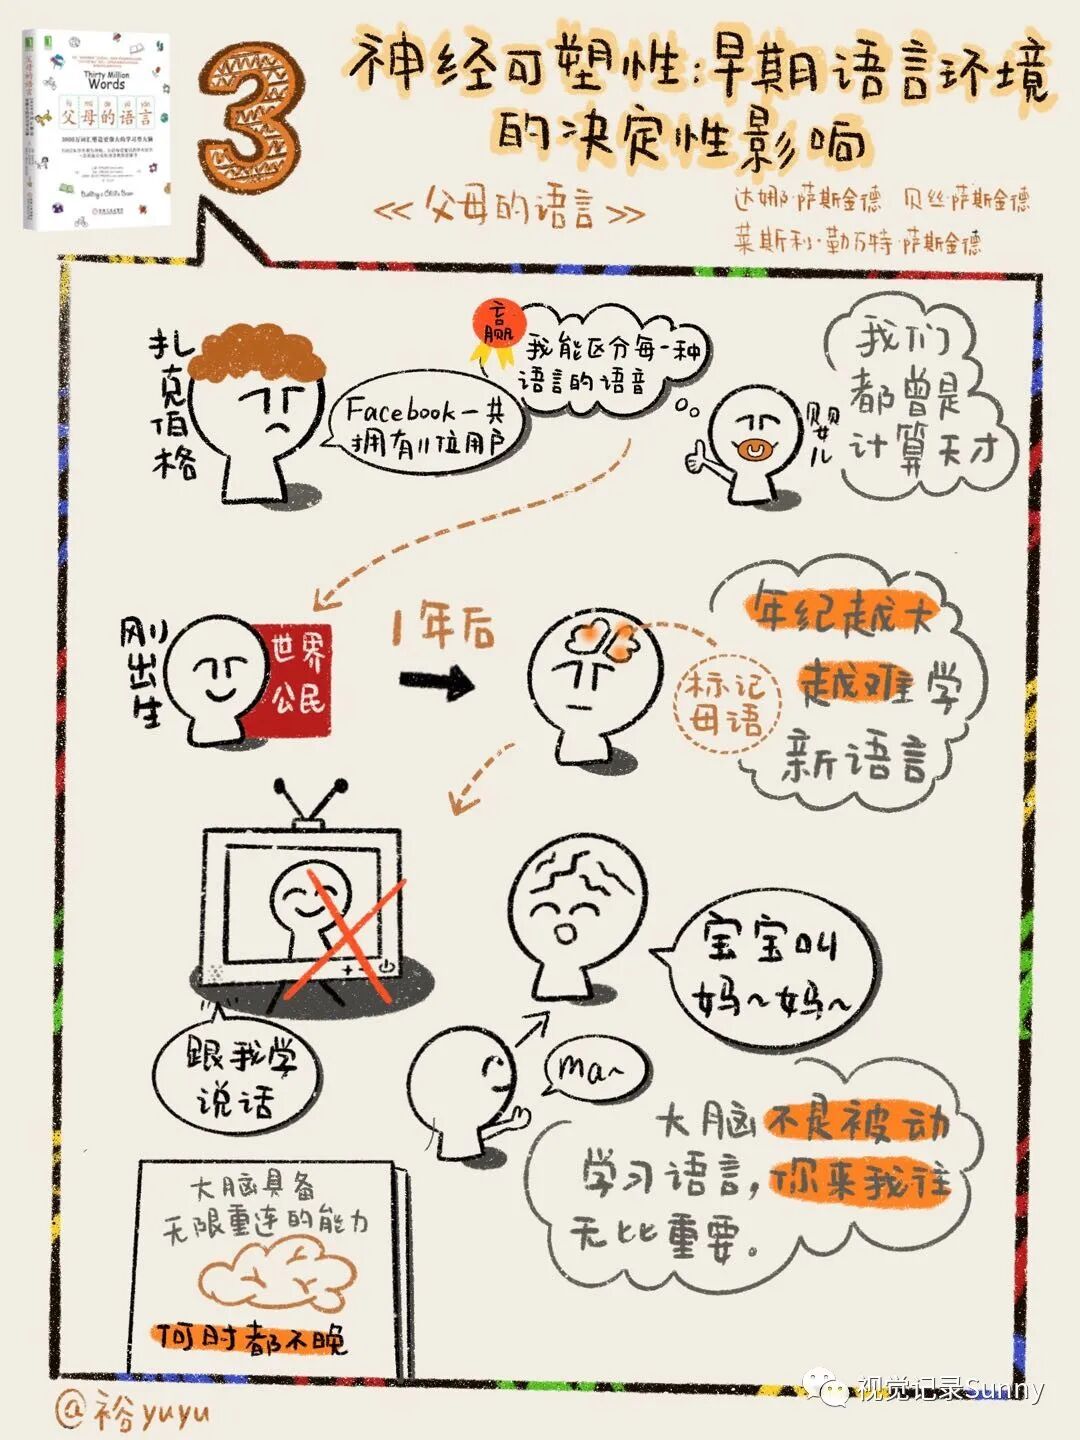 Thirty Million
Words
fù mǔ de yǔ yán
父母的语言
Building a Child's Brain
3
神经可塑性:早期语言环境
的决定性影响
《父母的语言》
达娜·萨斯金德 贝丝·萨斯金德
莱斯利·勒万特·萨斯金德
扎克伯格
Facebook一共
拥有11位用户
赢
我能区分每一种
语言的语音
婴儿
我们
都曾是
计算天才
刚出生
世界
公民
1年后
标记
母语
年纪越大
越难学
新语言
跟我学
说话
宝宝叫
妈~妈~
ma~
大脑不是被动
学习语言,你来我往
无比重要。
大脑具备
无限重连的能力
何时都不晚
@裕yuyu
视觉记录Sunny